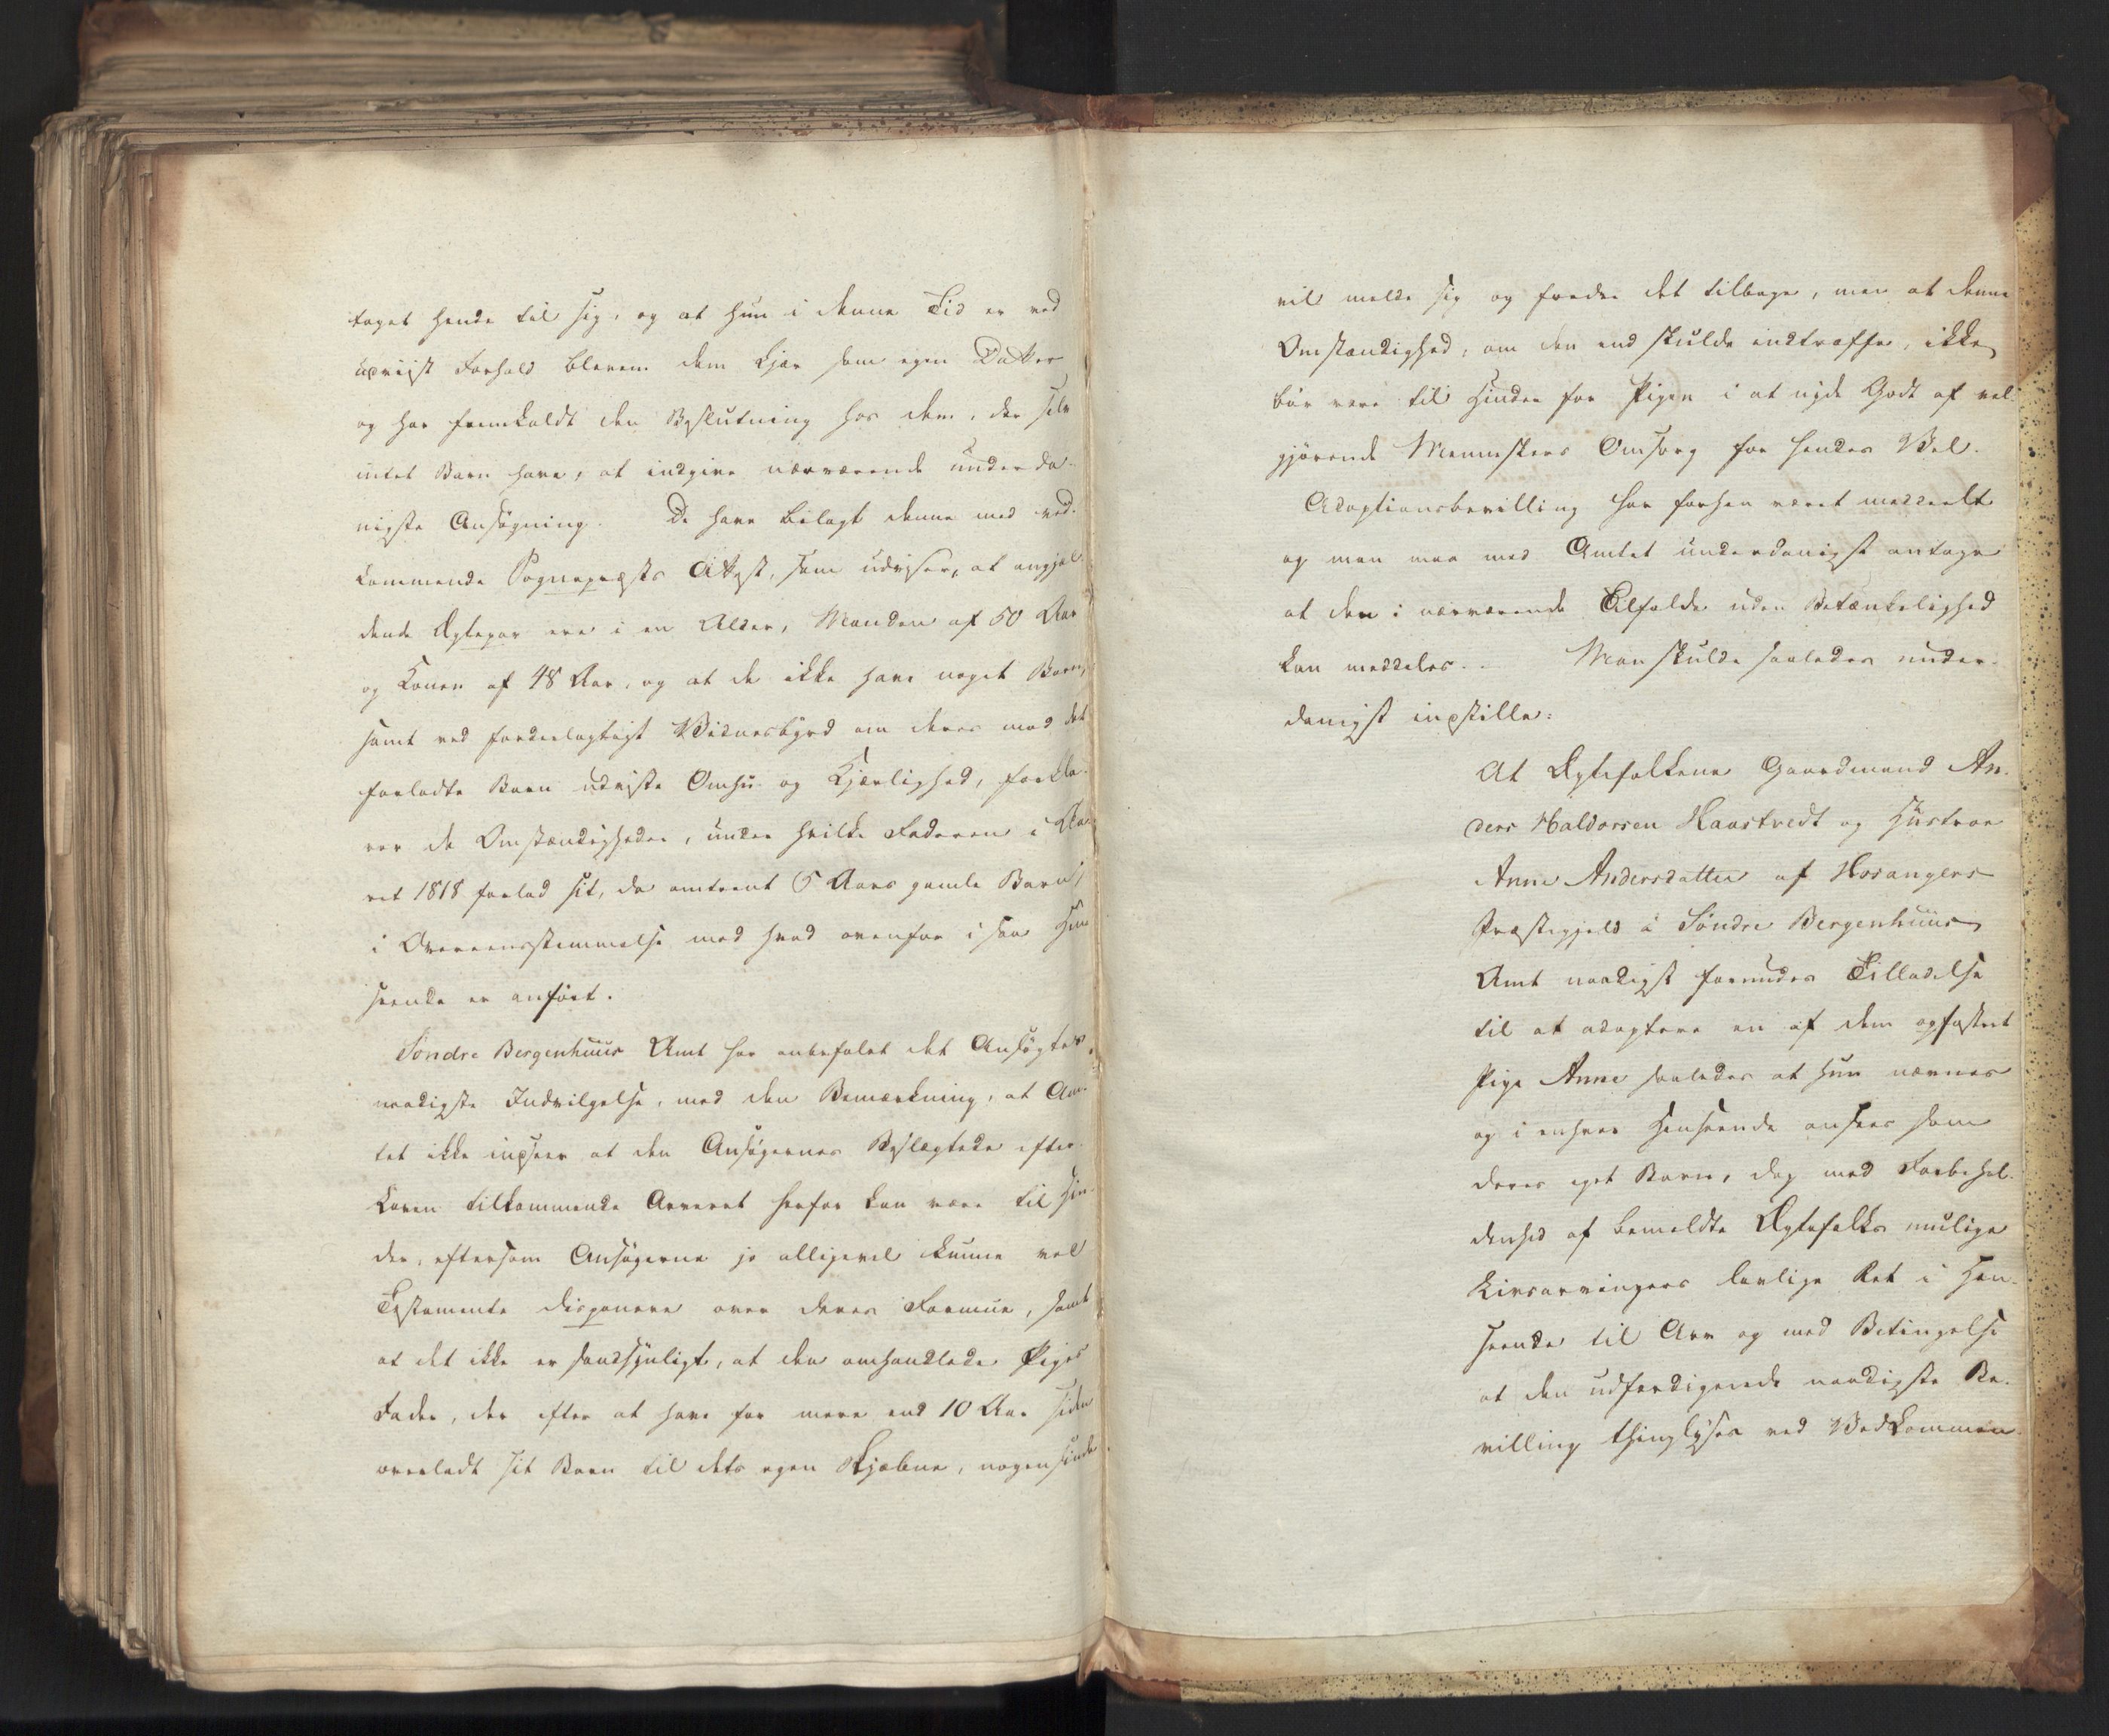 taget hende til sig, og at hun i denne Tid er ved
udviist Forhold bleven dem kjær som egen Datter
og har fremkaldt den Beslutning hos dem, der selv
intet Barn have, at indgive nærværende underda-
nigste Ansøgning. De have bilagt denne med ved-
kommende Sognepræsts Attest, som udviser, at angjæl-
dende Ægtepar ere i en Alder, Manden af 50 Aar
og Konen af 48 Aar, og at de ikke have noget Barn,
samt ved fordeelagtigt Vidnesbyrd om deres mod det
forladte Barn udviste Omhu og Kjærlighed, forkla-
rer de Omstændigheder, under hvilke Faderen i Aa-
ret 1818 forlod sit, da omtrent 5 Aars gamle Barn,
i Overeensstemmelse med hvad ovenfor i saa Hen-
seende er anført.
Søndre Bergenhuus Amt har anbefalet det Ansøgtes
naadigste Indvilgelse, med den Bemærkning, at Am-
tet ikke indseer at den Ansøgernes Beslægtede efter
Loven tilkommende Arveret herfor kan være til Hin-
der, eftersom Ansøgerne jo alligevel kunne ved
Testamente disponere over deres Formue, samt
at det ikke er sandsynligt, at den omhandlede Piges
Fader, der efter at have for mere end 10 Aar siden
overladt sit Barn til dets egen Skjæbne, nogensinde
vil melde sig og fordre det tilbage, men at denne
Omstændighed, om den end skulde indtræffe, ikke
bør være til Hinder for Pigen i at nyde Godt af vel-
gjørende Menneskers Omsorg for hendes Vel.
Adoptionsbevilling har forhen været meddeelt
og man maa med Amtet underdanigst antage
at den i nærværende Tilfælde uden Betænkelighed
kan meddeles. Man skulde saaledes under-
danigst indstille:
At Ægtefolkene Gaardmand An-
ders Haldorsen Haastvedt og Hustroe
Anne Andersdatter af Hosangers
Præstegjeld i Søndre Bergenhuus
Amt naadigst forundes Tilladelse
til at adoptere en af dem opfostret
Pige Anne saaledes at hun nævnes
og i enhver Henseende ansees som
deres eget Barn, dog med Forbehol-
denhed af bemeldte Ægtefolks mulige
Livsarvingers lovlige Ret i Hen-
seende til Arv og med Betingelse
at den udfærdigende naadigste Be-
villing thinglyses ved Vedkommen-